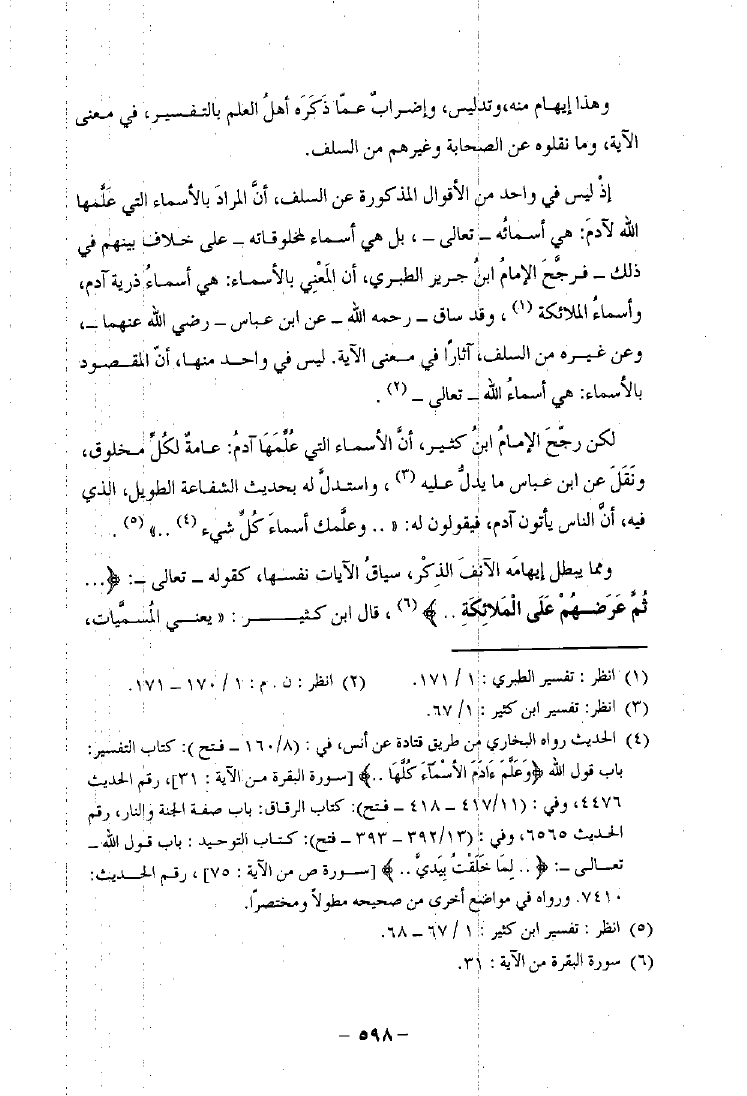 وهذا إيهام منه، وتدليس، وإضرابٌ عمّا ذَكَرَه أهلُ العلم بالتفسير، في معنى
الآية، وما نقلوه عن الصحابة وغيرهم من السلف.
إذْ ليس في واحد من الأقوال المذكورة عن السلف، أنَّ المرادَ بالأسماء التي عَلَّمها
الله لآدمَ: هي أسمائُه ــ تعالى ــ ، بل هي أسماء لمخلوقاته ــ على خلاف بينهم في
ذلك ــ فرجَّح الإمامُ ابنُ جرير الطبري، أن المَعْنِي بالأسماء: هي أسماءُ ذرية آدم،
وأسماءُ الملائكة (١) ، وقد ساق ــ رحمه الله ــ عن ابن عباس ــ رضي الله عنهما ــ،
وعن غيره من السلف، آثارًا في معنى الآية. ليس في واحد منها، أنّ المقصود
بالأسماء: هي أسماءُ الله ــ تعالى ــ (٢) .
لكن رجّحَ الإمامُ ابنُ كثير، أنَّ الأسماء التي عُلِّمَهَا آدمُ: عامةٌ لكُلِّ مخلوق،
ونَقَلَ عن ابن عباس ما يدلُّ عليه (٣) ، واستدلَّ له بحديث الشفاعة الطويل، الذي
فيه، أنَّ الناس يأتون آدم، فيقولون له: « .. وعلَّمك أسماءَ كُلِّ شيء (٤) ..» (٥) .
ومما يبطل إيهامَه الآنفَ الذِكْر، سياقُ الآيات نفسها، كقوله ــ تعالى ــ: ﴿...
ثُمَّ عَرَضَهُمْ عَلَى الْمَلائِكَةِ .. ﴾ (٦) ، قال ابن كثير : « يعني المُسمَّيات،
(١) انظر : تفسير الطبري : ١ / ١٧١. (٢) انظر : ن . م : ١ / ١٧٠ ــ ١٧١.
(٣) انظر: تفسير ابن كثير : ١ / ٦٧.
(٤) الحديث رواه البخاري من طريق قتادة عن أنس، في : (٨/ ١٦٠ ــ فتح ): كتاب التفسير:
باب قول الله ﴿وَعَلَّمَ ءَادَمَ الأَسْمَآءَ كُلَّهَا ..﴾ [سورة البقرة من الآية : ٣١]، رقم الحديث
٤٤٧٦، وفي : (١١/ ٤١٧ ــ ٤١٨ ــ فتح): كتاب الرقاق: باب صفة الجنة والنار، رقم
الحديث ٦٥٦٥، وفي : (١٣/ ٣٩٢ ــ ٣٩٣ ــ فتح): كتاب التوحيد : باب قول الله ــ
تعالى ــ: ﴿ .. لِمَا خَلَقْتُ بِيَدَيَّ .. ﴾ [سورة ص من الآية : ٧٥] ، رقم الحديث:
٧٤١٠. ورواه في مواضع أخرى من صحيحه مطولاً ومختصراً.
(٥) انظر : تفسير ابن كثير : ١ / ٦٧ ــ ٦٨.
(٦) سورة البقرة من الآية : ٣١.
– ٥٩٨ –